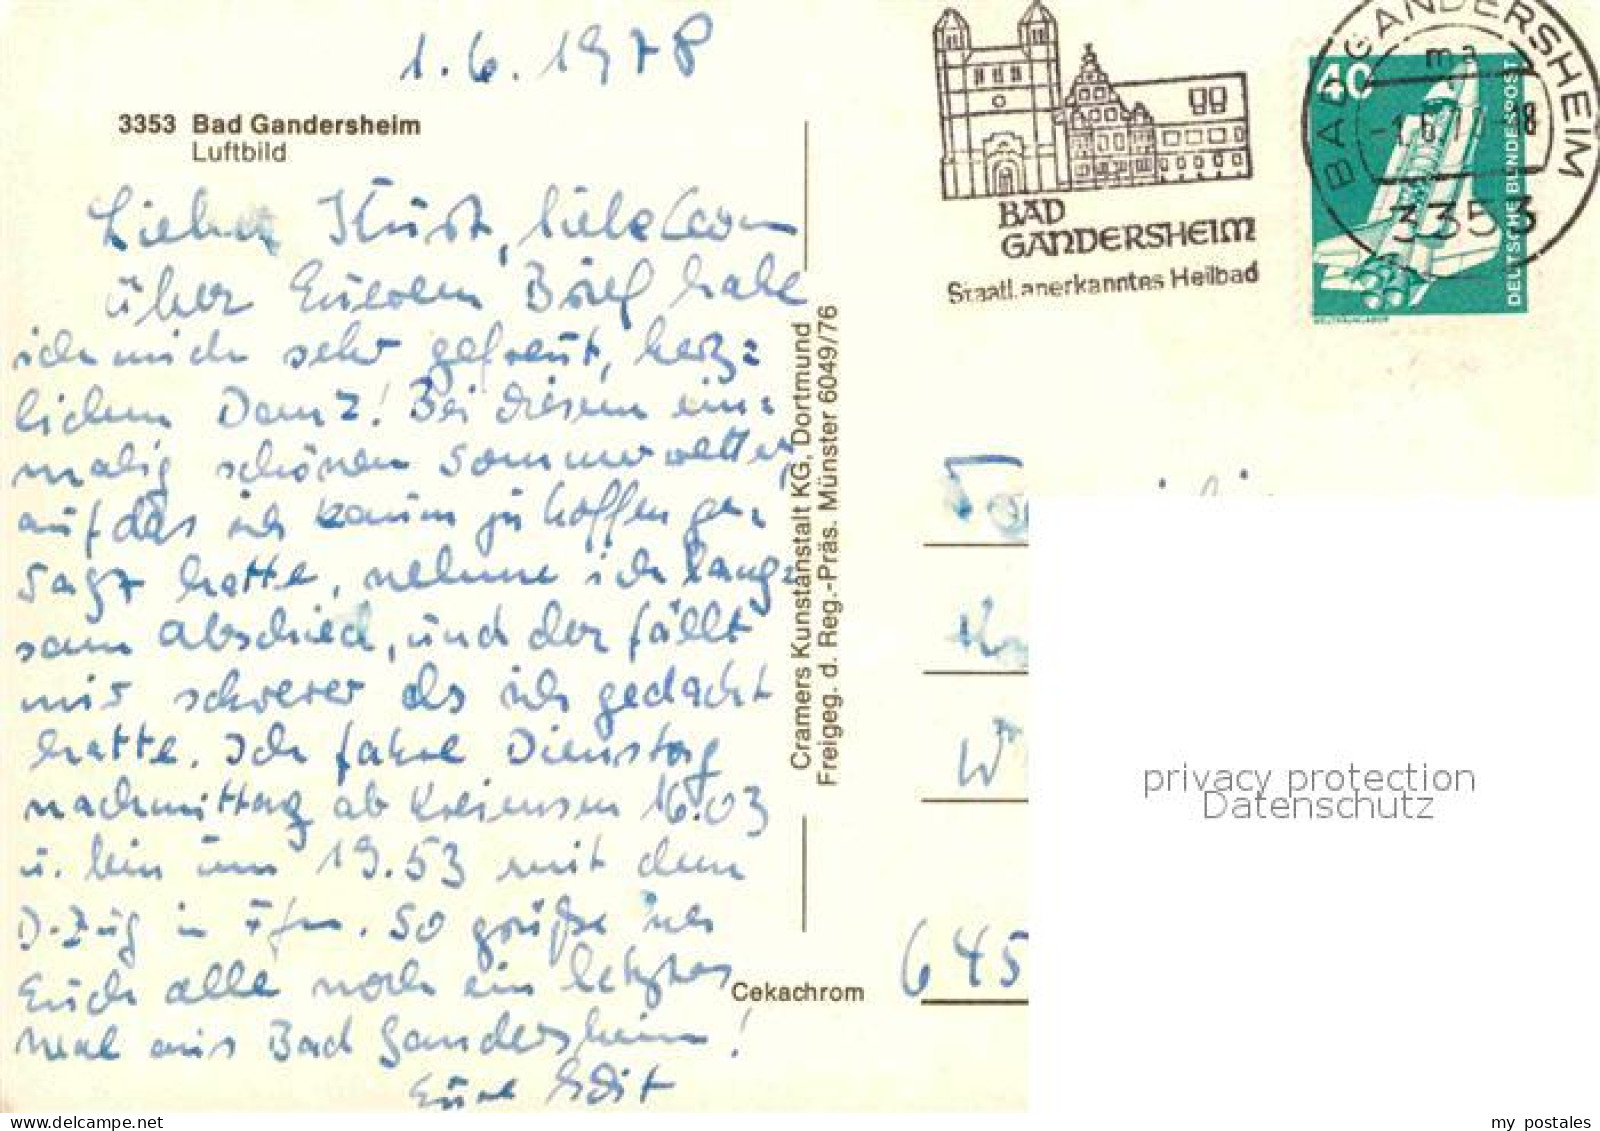 1.6.1978
3353 Bad Gandersheim
Luftbild
Lieber Kurt, liebe
über Eueren Brief habe
ich mich sehr gefreut, herz=
lichen Dank! Bei diesem ein=
malig schönen Sommerwetter,
auf das ich kaum zu hoffen ge=
sagt hatte, nehme ich lang=
sam Abschied, und der fällt
mir schwerer als ich gedacht
hatte. Ich fahre Dienstag
nachmittag ab Kreiensen 16.03
u. bin um 19.53 mit dem
D-Zug in Ffm. So grüße ich
Euch alle noch ein letztes
Mal aus Bad Gandersheim!
Eure Edit
Cramers Kunstanstalt KG, Dortmund
Freigeg. d. Reg.-Präs. Münster 6049/76
Cekachrom
BAD
GANDERSHEIM
Staatl. anerkanntes Heilbad
BAD GANDERSHEIM
ma
-18
3353
40
DEUTSCHE BUNDESPOST
W
645
privacy protection
Datenschutz
my postales
www.delcampe.net